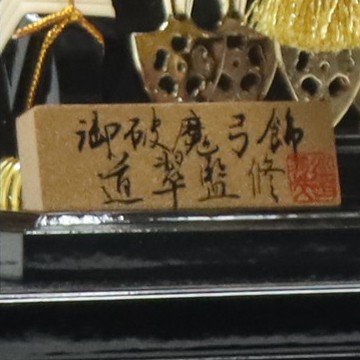 御破魔弓飾
道翠監修